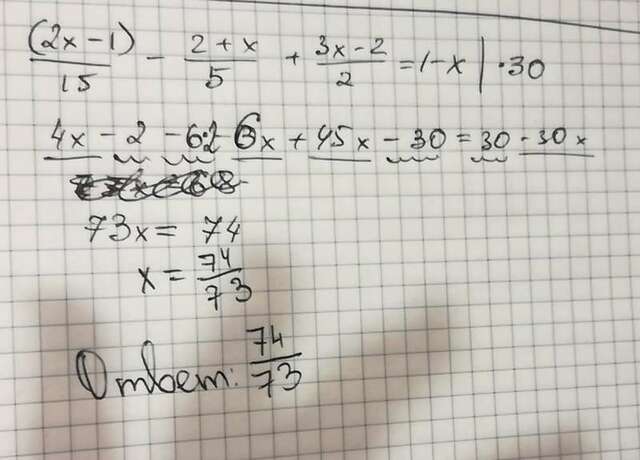 (2x-1)/15 - 2+x/5 + 3x-2/2 = 1-x | ·30
4x - 2 - 6·2 - 6x + 45x - 30 = 30 - 30x
73x = 74
x = 74/73
Ответ: 74/73